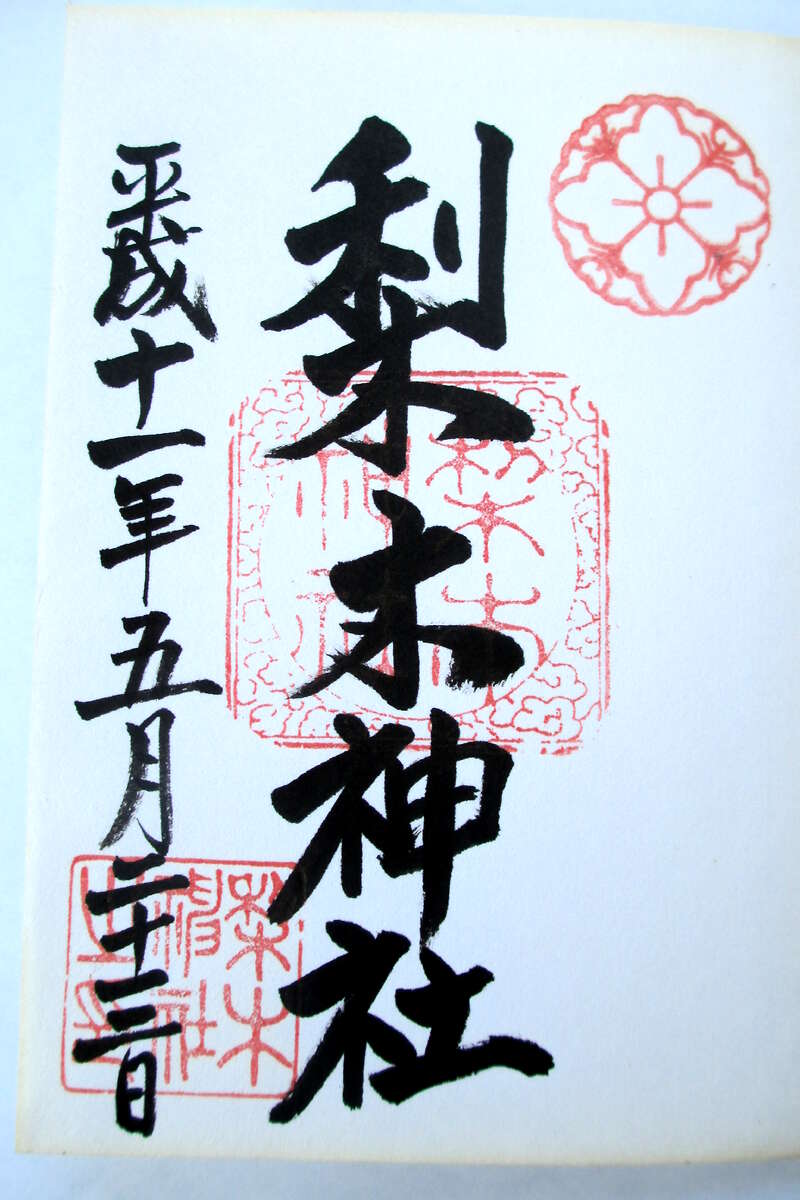 梨木神社
梨木
神社
平成十一年五月二十三日
梨木
神社
之印